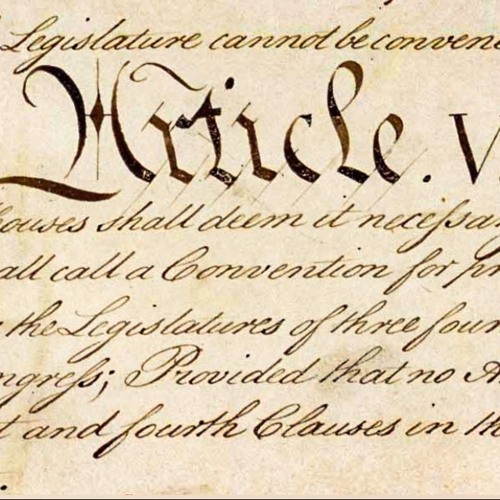 Legislature cannot be conven
Article. V
houses shall deem it necessar
all call a Convention for pr
the Legislatures of three four
ngress; Provided that no A
t and fourth Clauses in the